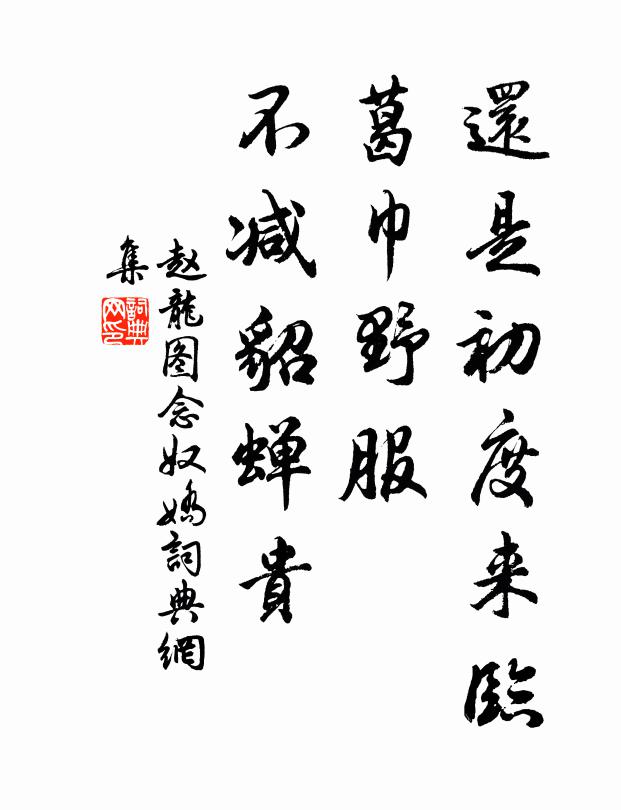 還是初度来臨
葛巾野服
不減貂蝉貴
赵龍图念奴嬌詞典網
集
詞典
网印